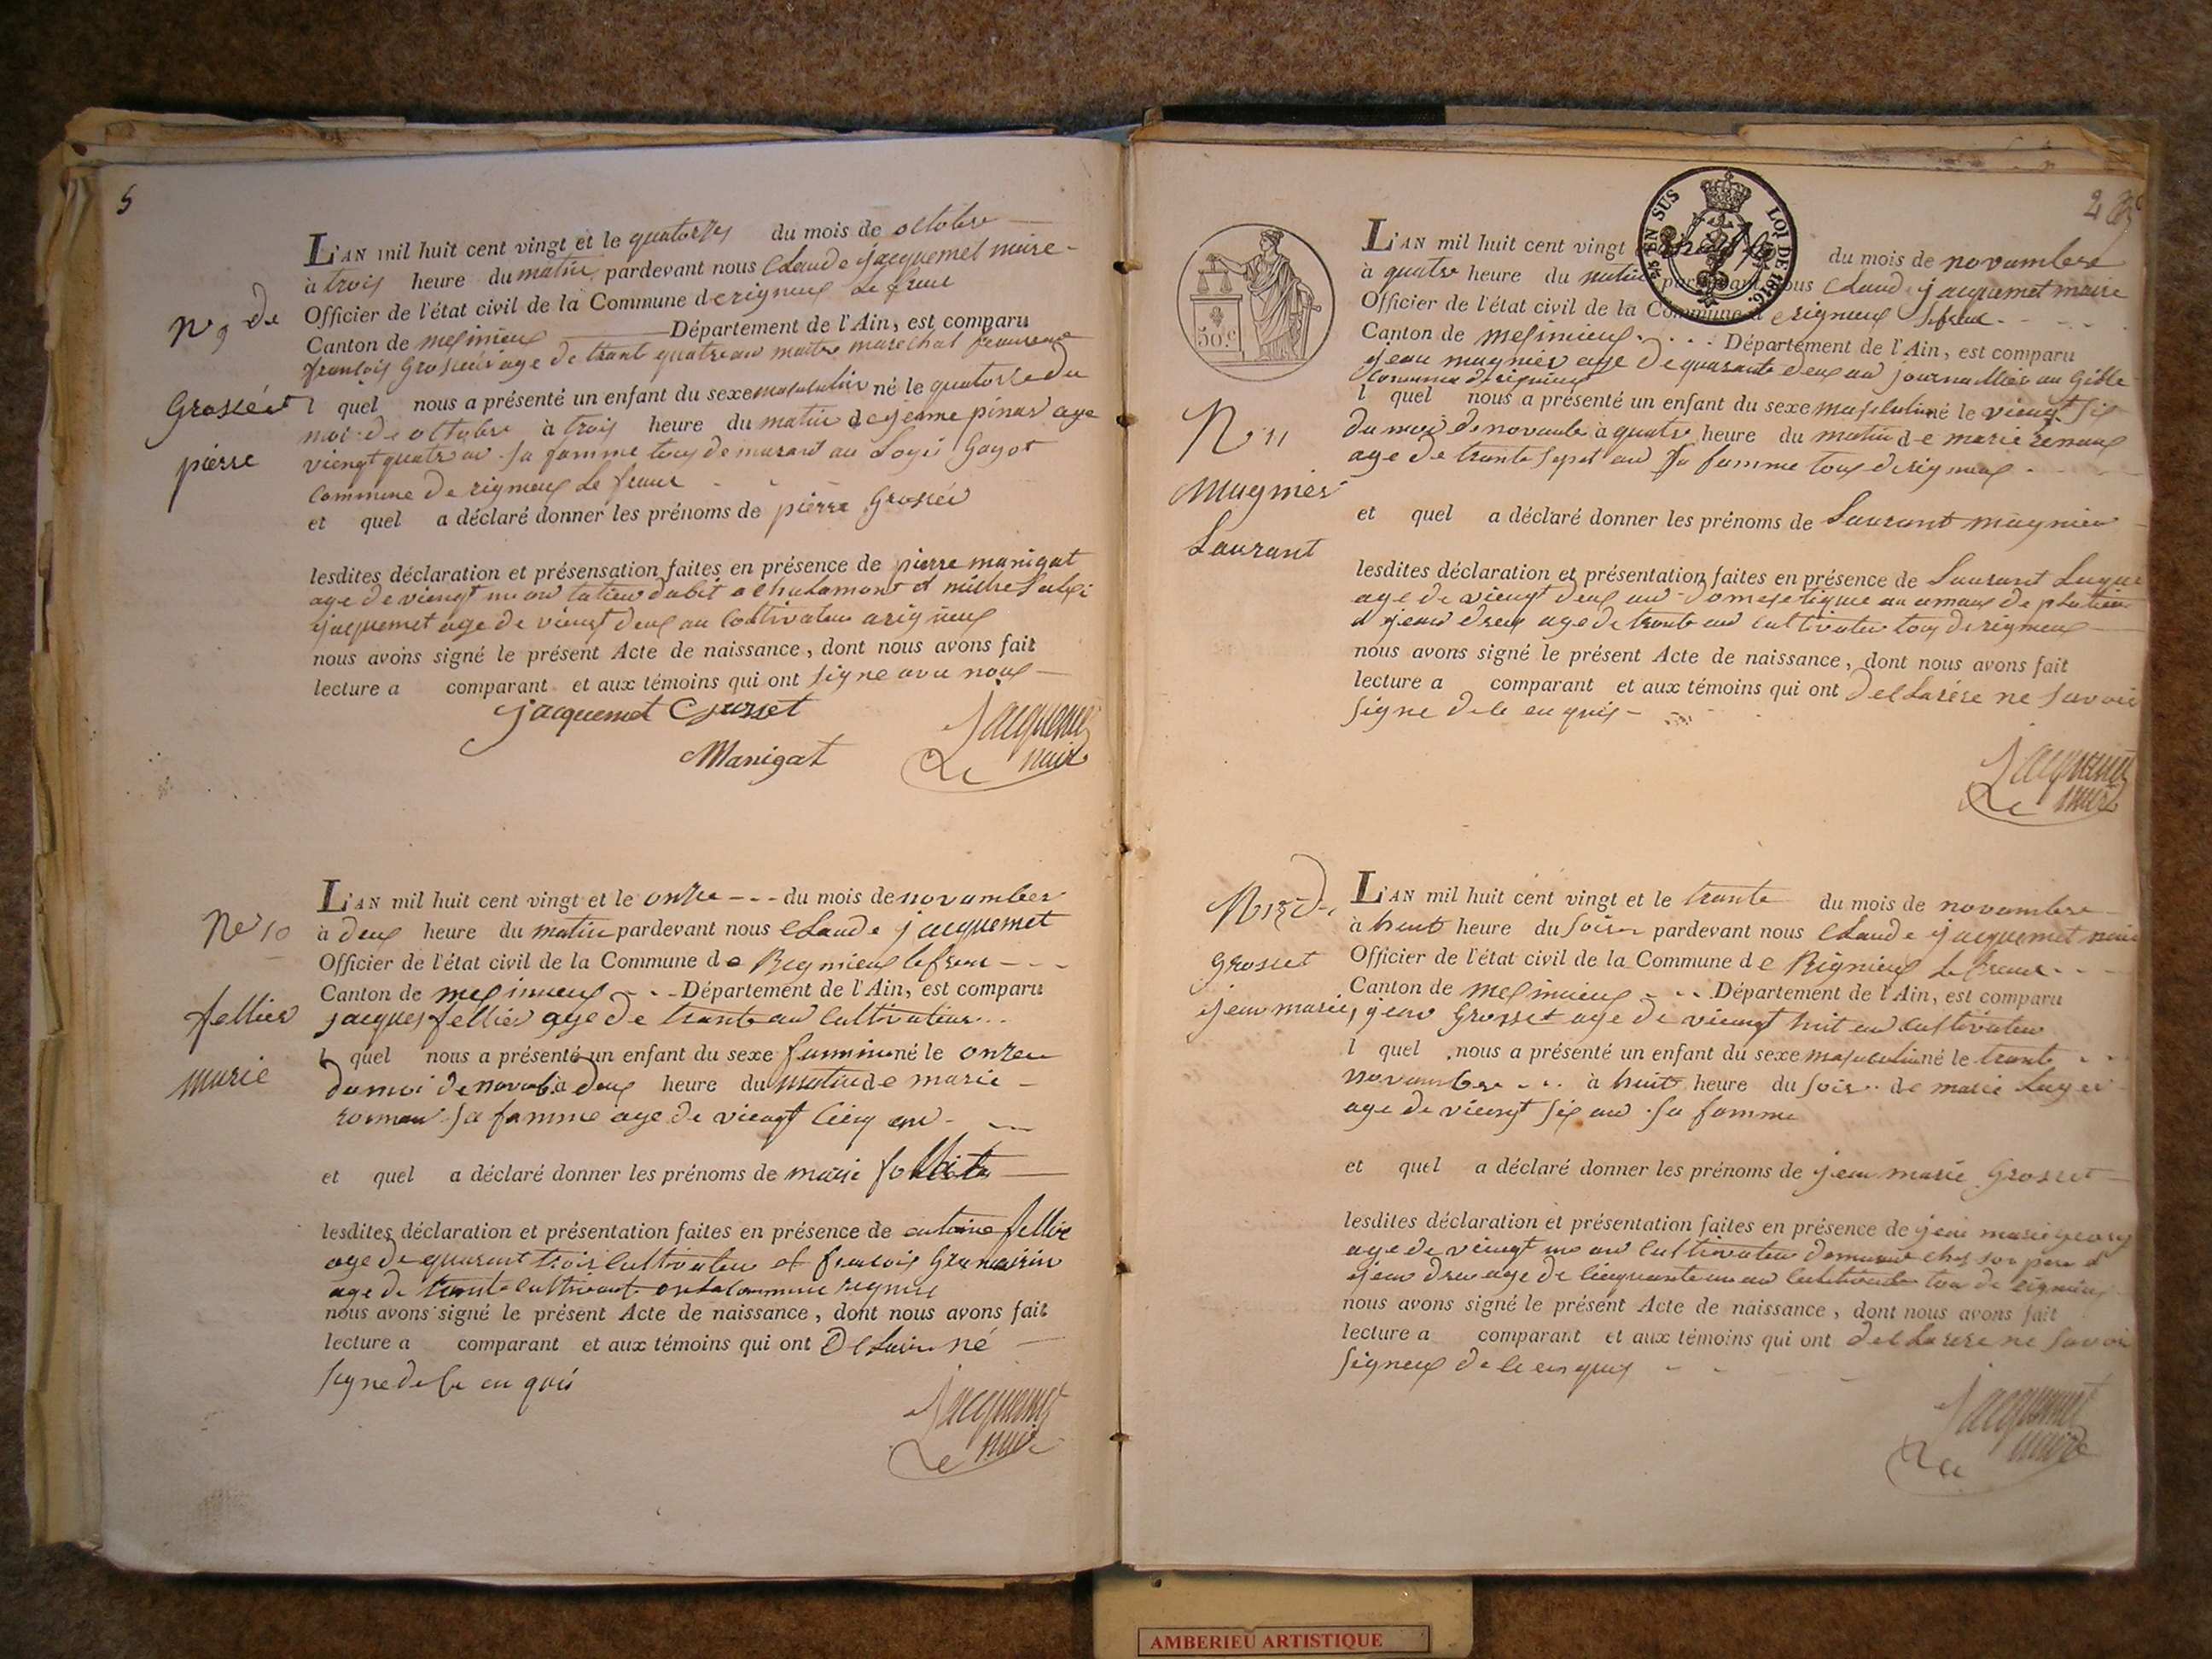 5
L'AN mil huit cent vingt et le quatorzes du mois de octobre
à trois heure du matin pardevant nous Claude jacquemet maire
Officier de l'état civil de la Commune de rigneux le franc
Canton de mesimieux Département de l'Ain, est comparu
francois Grosset age de trant quatre an maitre marechal
l quel nous a présenté un enfant du sexe masculin né le quatorze du
moi de octobre à trois heure du matin de jeanne pinar age
viengt quatre an sa famme tous demurant au Logis Gayot
commune de rigneux le franc
et quel a déclaré donner les prénoms de pierre Grosset
lesdites déclaration et présensation faites en présence de pierre manigat
age de viengt un an abit a chalamont et
jacquemet age de viengt deux an coltivateur a rigneux
nous avons signé le présent Acte de naissance, dont nous avons fait
lecture a comparant et aux témoins qui ont signe avec nous
jacquemet Grosset
Manigat
Jacquemet
Le maire
N 9 de
Grosset
pierre
L'AN mil huit cent vingt et le onze du mois de novamber
à deux heure du matin pardevant nous Claude jacquemet
Officier de l'état civil de la Commune de Rignieux le franc
Canton de mesimieux Département de l'Ain, est comparu
jacques fellier age de trante an cultivateur
l quel nous a présenté un enfant du sexe faminin né le onze
du moi de novab à deux heure du matin de marie
sa famme age de viengt cinq an
et quel a déclaré donner les prénoms de marie
lesdites déclaration et présentation faites en présence de antoine fellier
age de quarant trois cultivateur et francois
age de trante cultivant commune
nous avons signé le présent Acte de naissance, dont nous avons fait
lecture a comparant et aux témoins qui ont né
signe de ce en quis
Jacquemet
Le maire
No 10
fellier
marie
2
45 EN SUS LOI DE 1816.
50.c
L'AN mil huit cent vingt du mois de novambre
à quatre heure du matin pardevant nous Claude jacquemet maire
Officier de l'état civil de la Commune d rigneux le franc
Canton de mesimieux Département de l'Ain, est comparu
jean magnier age de quarante deux an journallier au
commune de rigneux
l quel nous a présenté un enfant du sexe masculin né le viengt six
du moi de novanbe à quatre heure du matin de marie renaux
age de trante sept an sa famme tous de rigneux
et quel a déclaré donner les prénoms de Laurant magnier
lesdites déclaration et présentation faites en présence de Laurant
age de viengt deux an domestique
et jean dreux age de trante an cultivateur tous de rigneux
nous avons signé le présent Acte de naissance, dont nous avons fait
lecture a comparant et aux témoins qui ont dellarere ne savoir
signe de ce en quis
Jacquemet
Le maire
N 11
Magnier
Laurant
L'AN mil huit cent vingt et le trante du mois de novambre
à huit heure du soir pardevant nous Claude jacquemet maire
Officier de l'état civil de la Commune de Rignieux le franc
Canton de mesimieux Département de l'Ain, est comparu
jean Grosset age de viengt huit an cultivateur
l quel nous a présenté un enfant du sexe masculin né le trante
novambre à huit heure du soir de marie
age de viengt six an sa famme
et quel a déclaré donner les prénoms de jean marie Grosset
lesdites déclaration et présentation faites en présence de jean marie
age de viengt un an cultivateur demurant chez son pere et
jean dreu age de cinquante un an cultivateur tou de rignieux
nous avons signé le présent Acte de naissance, dont nous avons fait
lecture a comparant et aux témoins qui ont dellarere ne savoir
signeux de ce en quis
Jacquemet
Le maire
Grosset
jean marie
AMBERIEU ARTISTIQUE